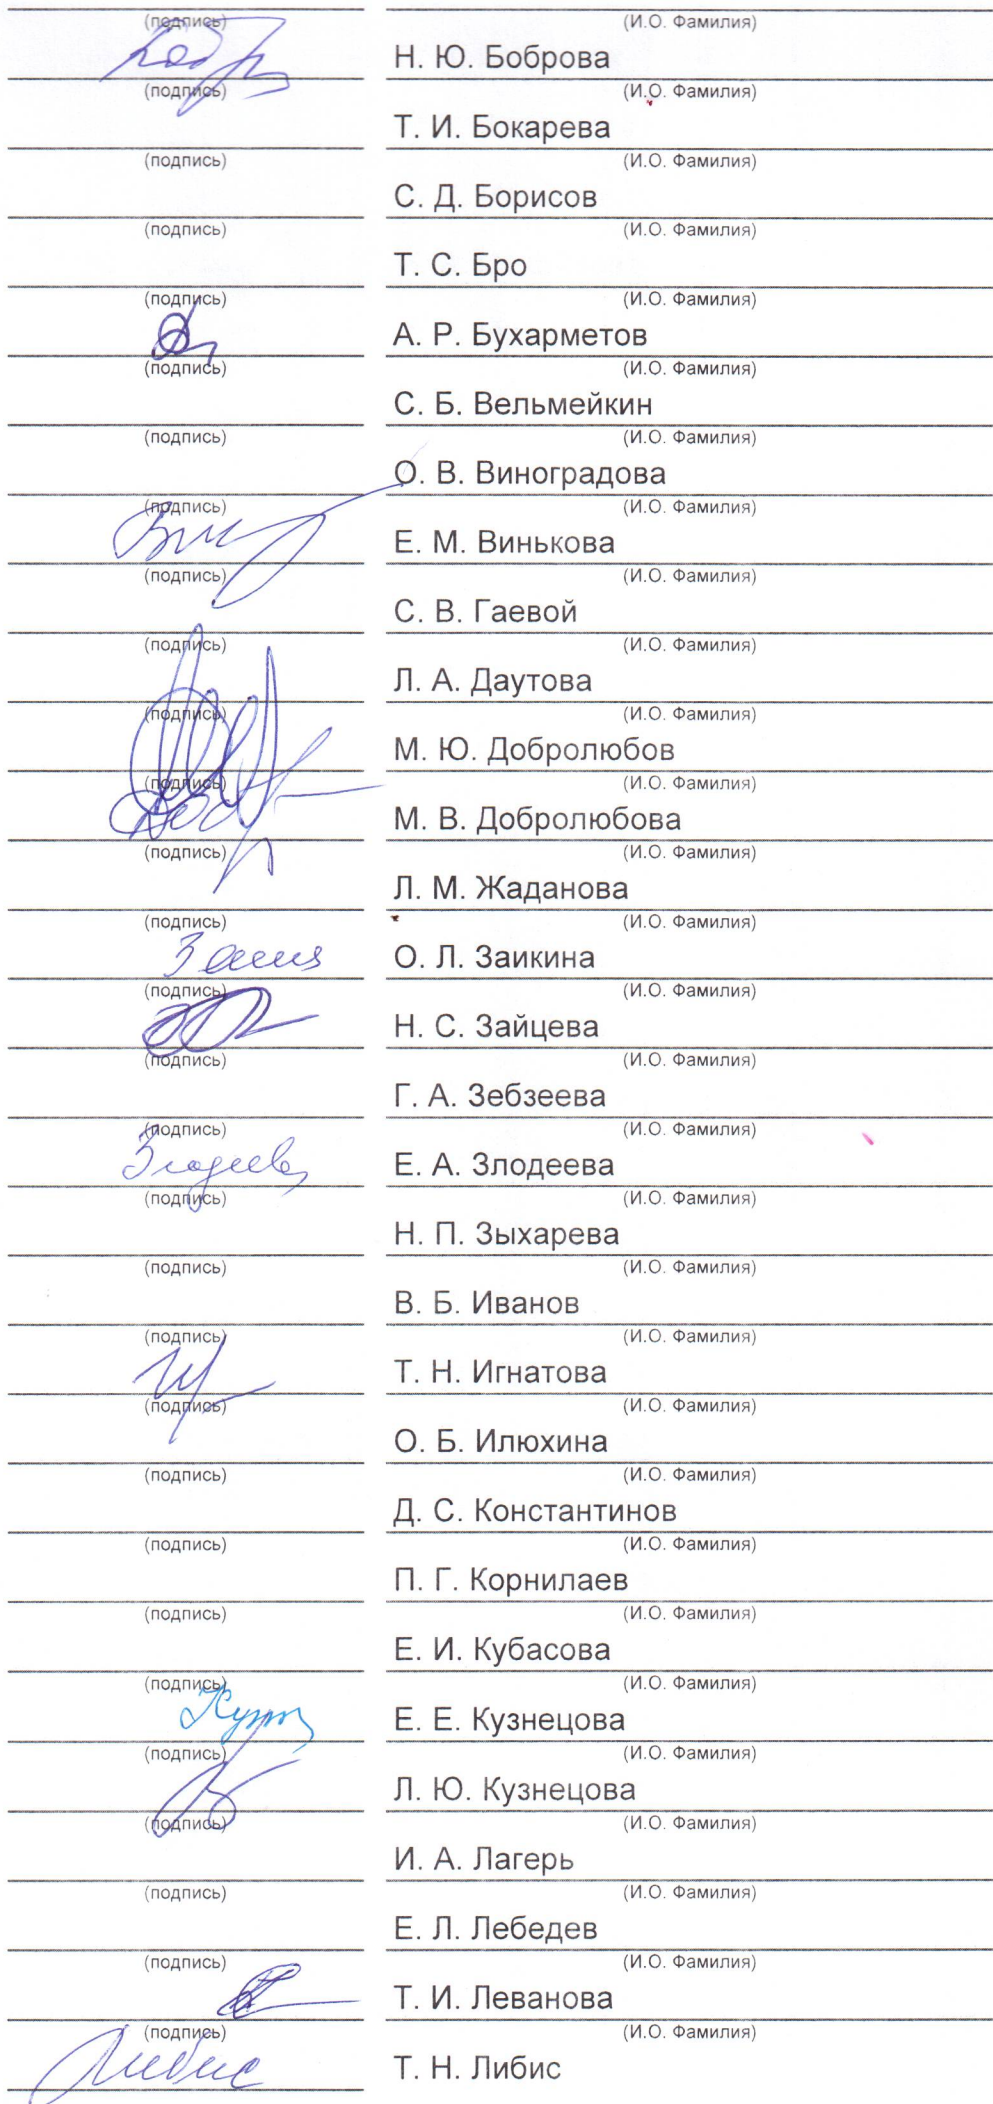 (подпись) (И.О. Фамилия)
Н. Ю. Боброва
(подпись) (И.О. Фамилия)
Т. И. Бокарева
(подпись) (И.О. Фамилия)
С. Д. Борисов
(подпись) (И.О. Фамилия)
Т. С. Бро
(подпись) (И.О. Фамилия)
А. Р. Бухарметов
(подпись) (И.О. Фамилия)
С. Б. Вельмейкин
(подпись) (И.О. Фамилия)
О. В. Виноградова
(подпись) (И.О. Фамилия)
Е. М. Винькова
(подпись) (И.О. Фамилия)
С. В. Гаевой
(подпись) (И.О. Фамилия)
Л. А. Даутова
(подпись) (И.О. Фамилия)
М. Ю. Добролюбов
(подпись) (И.О. Фамилия)
М. В. Добролюбова
(подпись) (И.О. Фамилия)
Л. М. Жаданова
(подпись) (И.О. Фамилия)
О. Л. Заикина
(подпись) (И.О. Фамилия)
Н. С. Зайцева
(подпись) (И.О. Фамилия)
Г. А. Зебзеева
(подпись) (И.О. Фамилия)
Злодеева Е. А. Злодеева
(подпись) (И.О. Фамилия)
Н. П. Зыхарева
(подпись) (И.О. Фамилия)
В. Б. Иванов
(подпись) (И.О. Фамилия)
Т. Н. Игнатова
(подпись) (И.О. Фамилия)
О. Б. Илюхина
(подпись) (И.О. Фамилия)
Д. С. Константинов
(подпись) (И.О. Фамилия)
П. Г. Корнилаев
(подпись) (И.О. Фамилия)
Е. И. Кубасова
(подпись) (И.О. Фамилия)
Е. Е. Кузнецова
(подпись) (И.О. Фамилия)
Л. Ю. Кузнецова
(подпись) (И.О. Фамилия)
И. А. Лагерь
(подпись) (И.О. Фамилия)
Е. Л. Лебедев
(подпись) (И.О. Фамилия)
Т. И. Леванова
(подпись) (И.О. Фамилия)
Либис Т. Н. Либис